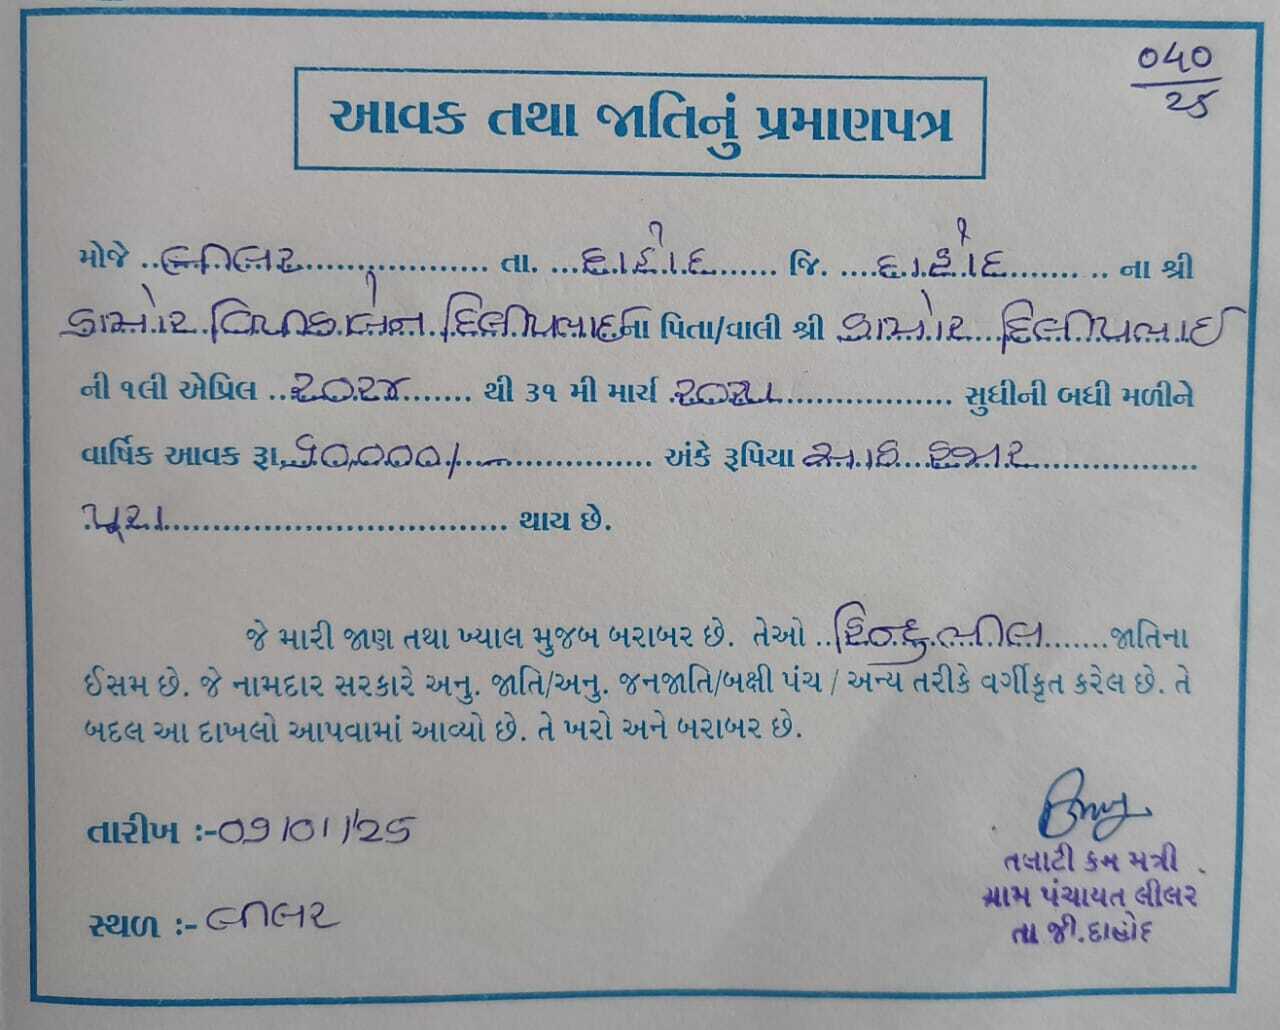 ૦૫૦
25
આવક તથા જાતિનું પ્રમાણપત્ર
મોજે ..લીલર.................... તા. ...દાહોદ....... જિ. ....દાહોદ......... ના શ્રી
ડામોર દિલીપભાઈના પિતા/વાલી શ્રી ડામોર દિલીપભાઈ
ની ૧લી એપ્રિલ ..૨૦૨૪....... થી ૩૧ મી માર્ચ .૨૦૨૫................. સુધીની બધી મળીને
વાર્ષિક આવક રૂા. ૬૦,૦૦૦/-.............. અંકે રૂપિયા સાઈઠ હજાર................
પૂરા................................ થાય છે.
જે મારી જાણ તથા ખ્યાલ મુજબ બરાબર છે. તેઓ ..હિન્દુ ભીલ.......જાતિના
ઈસમ છે. જે નામદાર સરકારે અનુ. જાતિ/અનુ. જનજાતિ/બક્ષી પંચ / અન્ય તરીકે વર્ગીકૃત કરેલ છે. તે
બદલ આ દાખલો આપવામાં આવ્યો છે. તે ખરો અને બરાબર છે.
તારીખ :-09/01/25
સ્થળ :- લીલર
તલાટી કમ મંત્રી
ગ્રામ પંચાયત લીલર
તા જી.દાહોદ